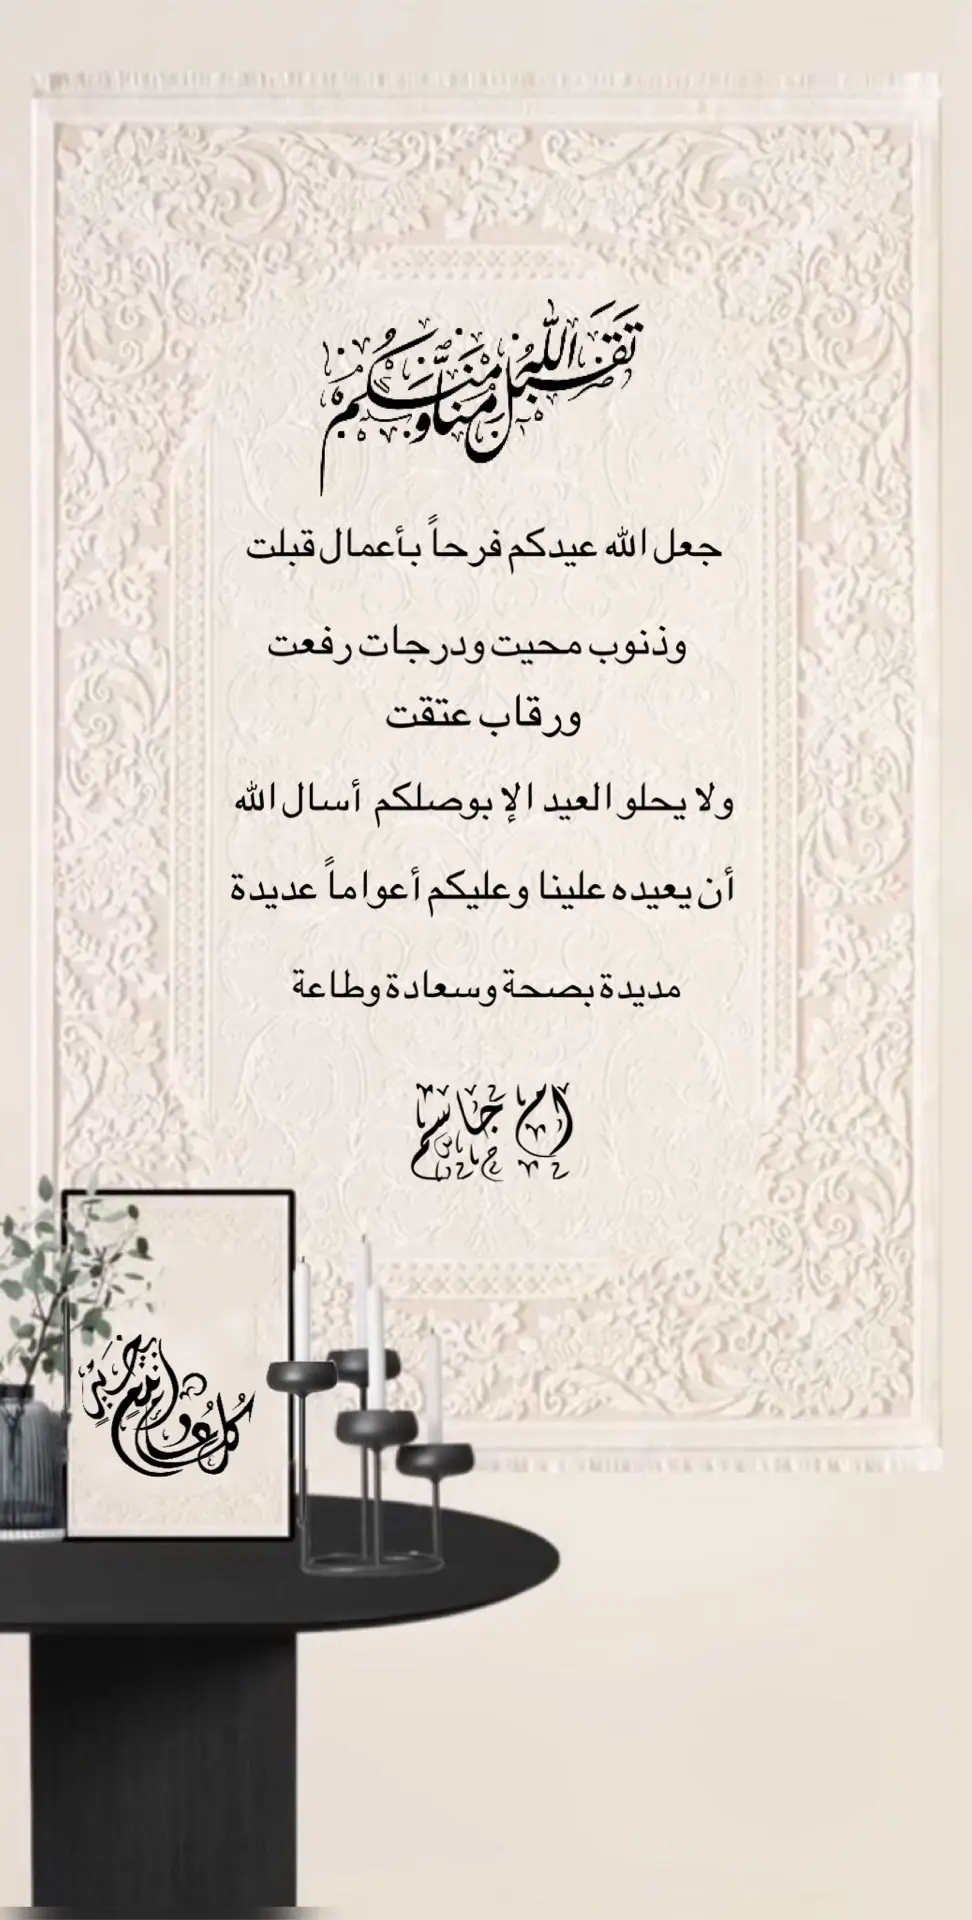 تقبل الله منا ومنكم
جعل الله عيدكم فرحاً بأعمال قبلت
وذنوب محيت ودرجات رفعت
ورقاب عتقت
ولا يحلو العيد الإ بوصلكم أسال الله
أن يعيده علينا وعليكم أعواماً عديدة
مديدة بصحة وسعادة وطاعة
ام جاسم
كل عام وانتم بخير